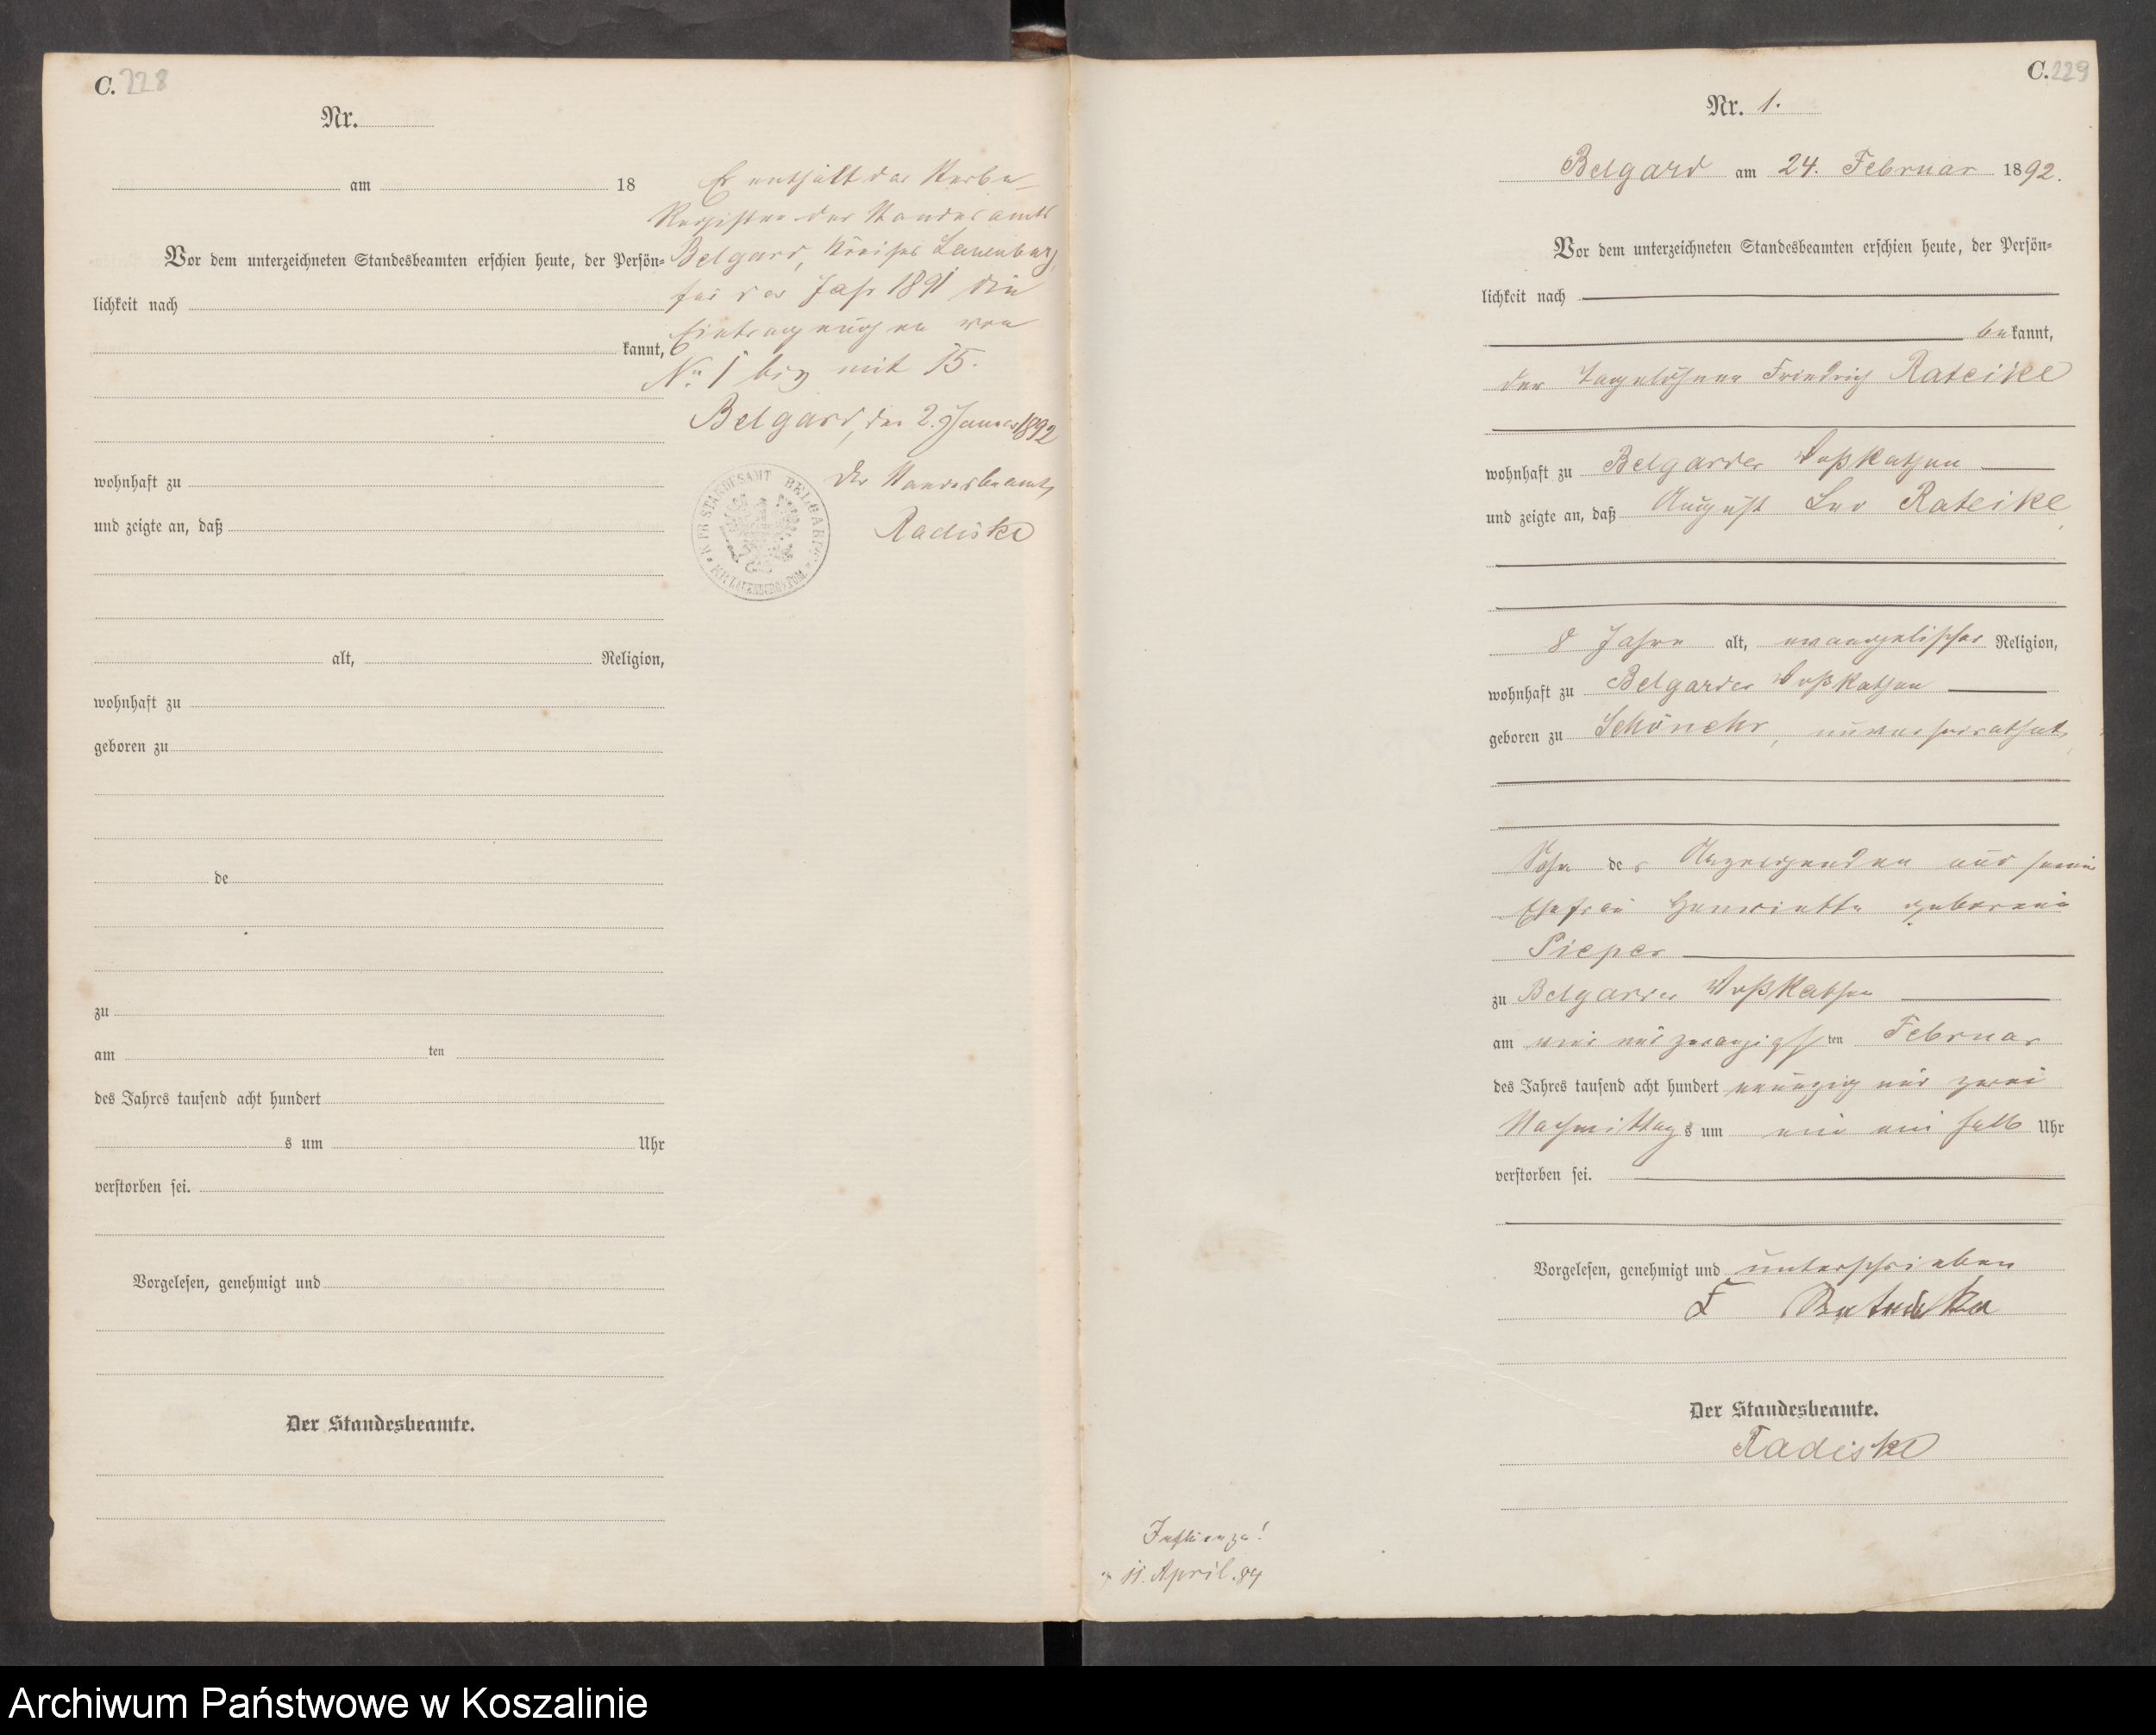 C. 228
Nr.
am 18
Vor dem unterzeichneten Standesbeamten erschien heute, der Persön-
lichkeit nach
kannt,
wohnhaft zu
und zeigte an, daß
alt, Religion,
wohnhaft zu
geboren zu
de
zu
am ten
des Jahres tausend acht hundert
s um Uhr
verstorben sei.
Vorgelesen, genehmigt und
Der Standesbeamte.
Es enthält das Sterbe-
Register des Standesamts
Belgard, Kreises Lauenburg,
für das Jahr 1891 die
Eintragungen von
No. 1 bis mit 15.
Belgard, den 2. Januar 1892
Der Standesbeamte,
Radiske
K. PR. STANDESAMT BELGARD
KR. LAUENBURG i/POM.
C. 229
Nr. 1.
Belgard am 24. Februar 1892.
Vor dem unterzeichneten Standesbeamten erschien heute, der Persön-
lichkeit nach
bekannt,
der Tagelöhner Friedrich Rateike
wohnhaft zu Belgarder Voßkathen
und zeigte an, daß August Leo Rateike,
8 Jahre alt, evangelischer Religion,
wohnhaft zu Belgarder Voßkathen
geboren zu Schönehr, unverheirathet,
Sohn des Anzeigenden und seiner
Ehefrau Henriette geborene
Pieper
zu Belgarder Voßkathen
am ein und zwanzigsten Februar
des Jahres tausend acht hundert neunzig und zwei
Nachmittags um ein ein halb Uhr
verstorben sei.
Vorgelesen, genehmigt und unterschrieben
F Rateike
Der Standesbeamte.
Radiske
Influenza!
11. April. 84
Archiwum Państwowe w Koszalinie